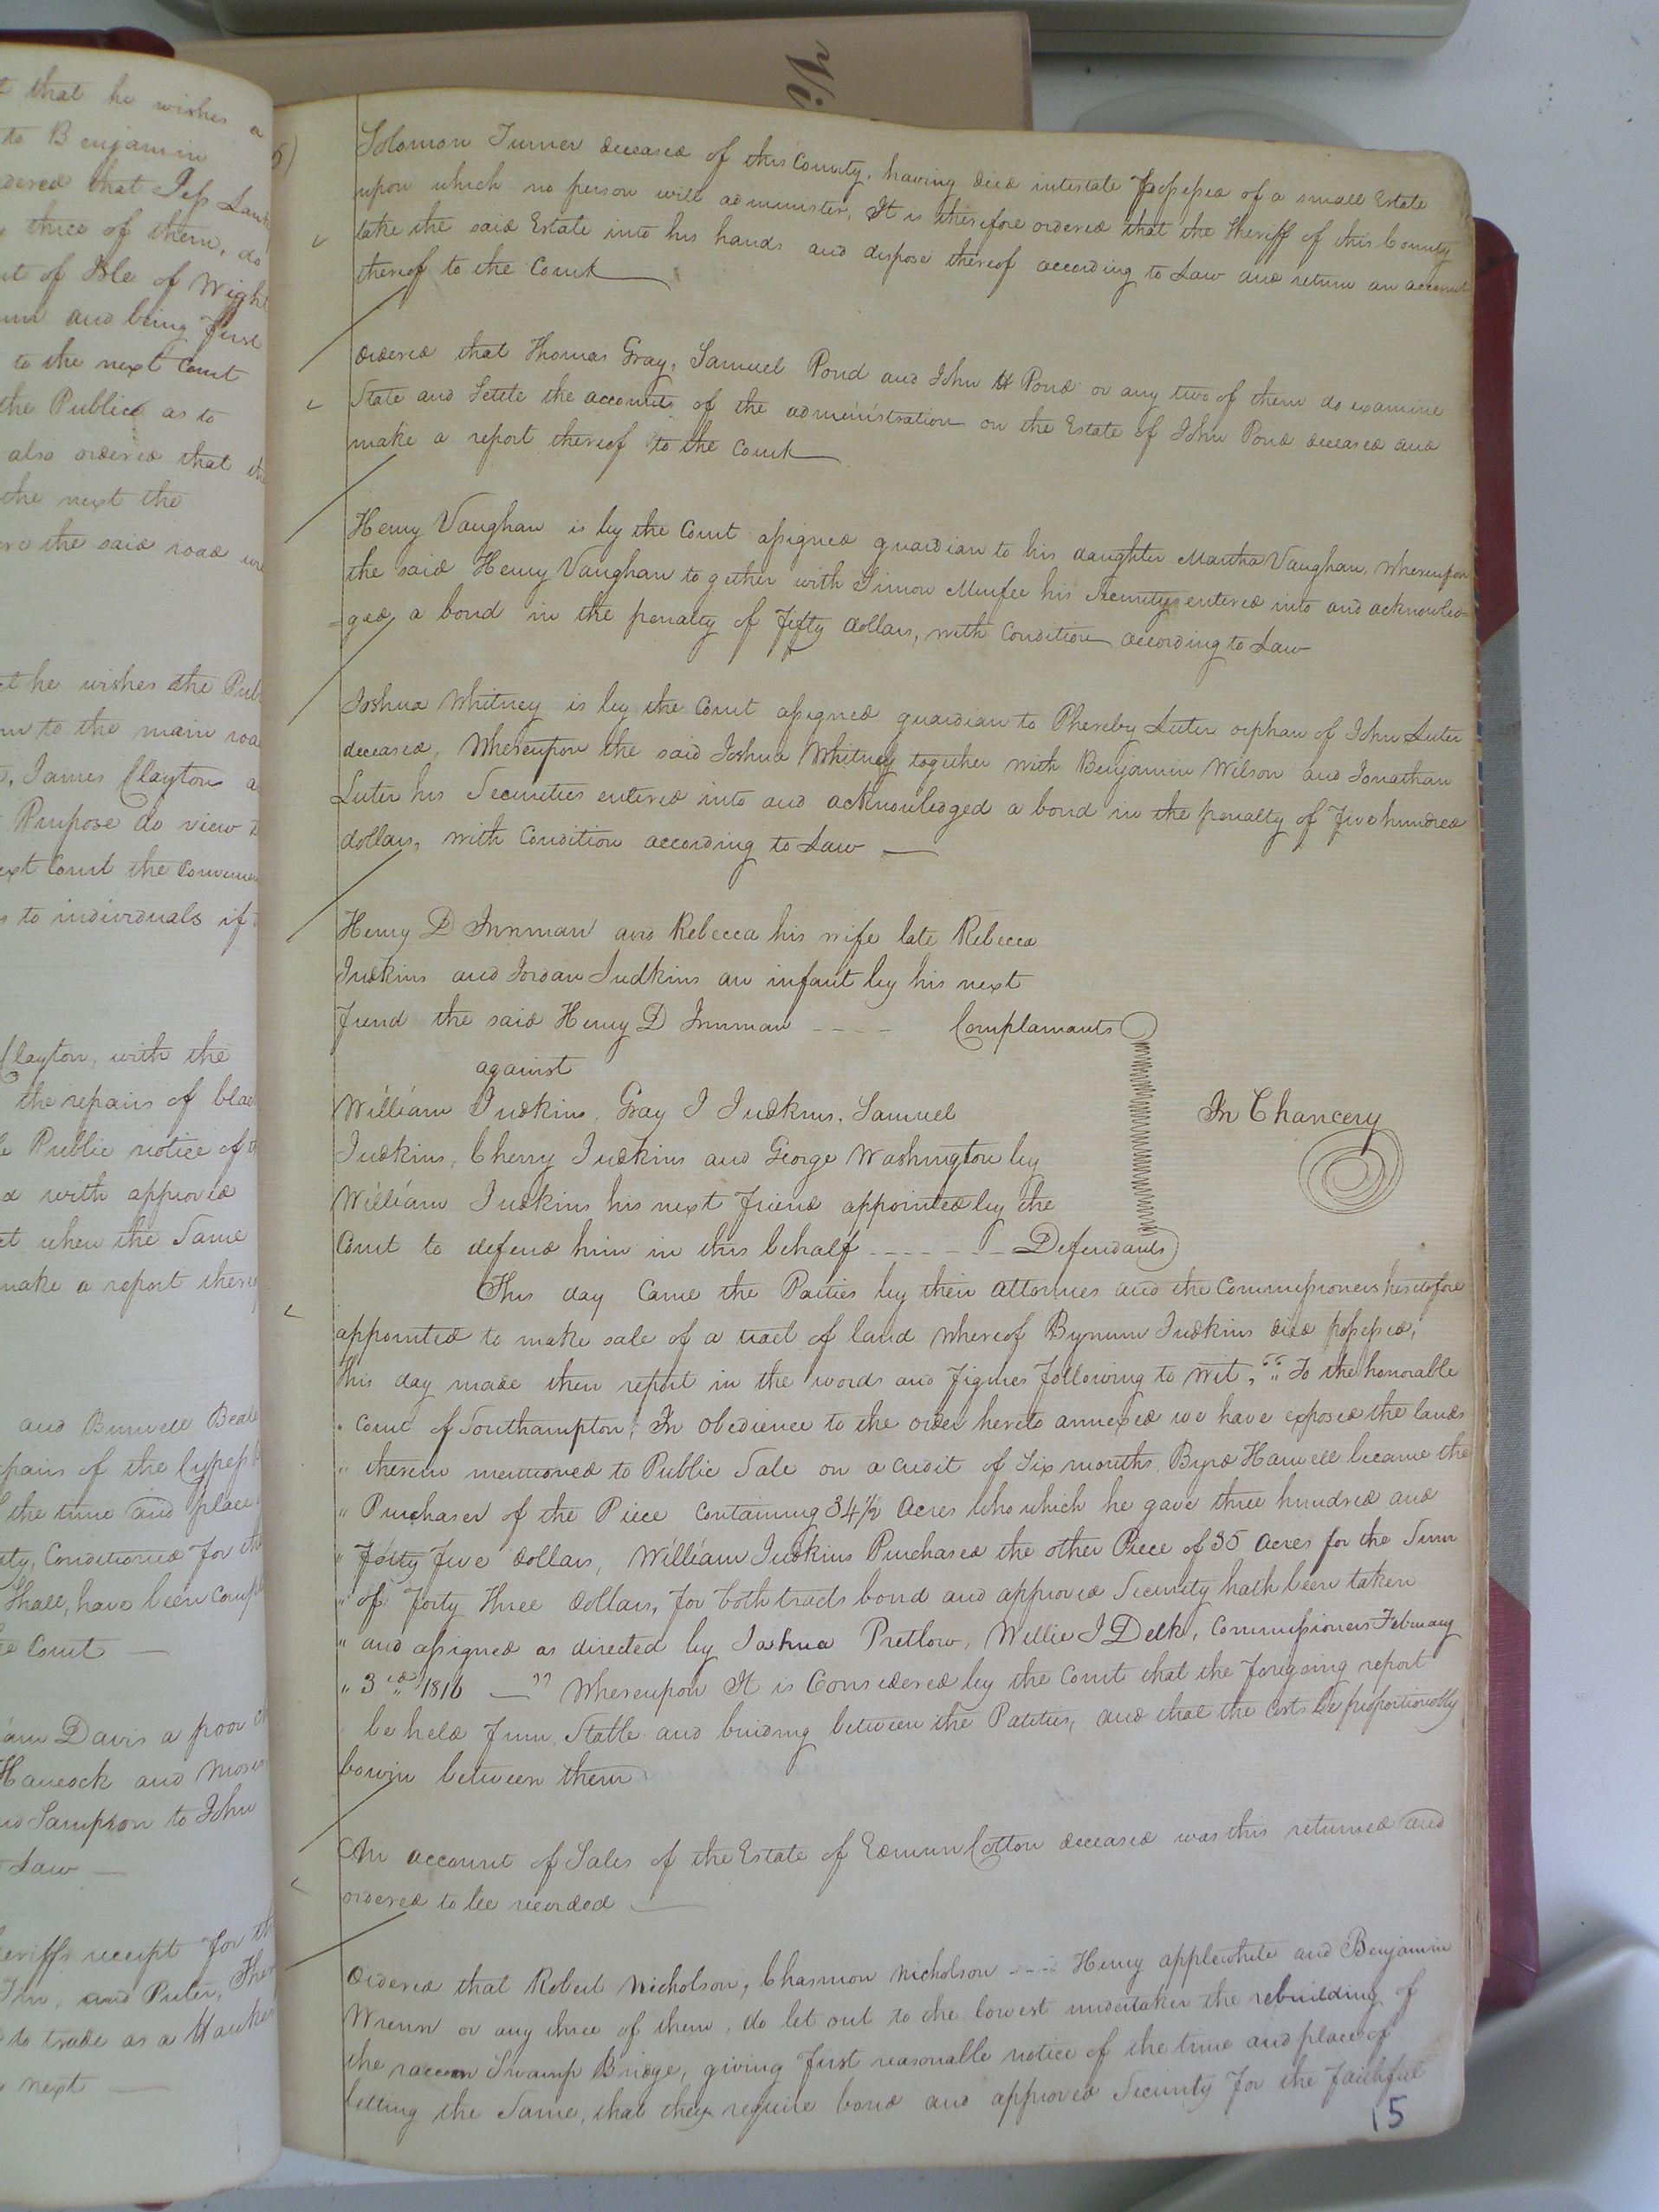 t that he wishes a
to Benjamin
dered that Jess Lank
three of them, do
nt of Isle of Wight
and being first
to the next Court
the Public as to
also ordered that the
the next the
the said road
he wishes the Pub
to the main roa
James Clayton a
Purpose do view
ext Court the Conven
s to individuals if
Clayton, with the
the repairs of blac
Public notice of
with approved
et when the Same
make a report there
and Burwell Beale
pairs of the Cypress
the time and place
Conditioned for the
Shall, have been comp
Court
am Davis a poor
Hancock and Moses
Sampson to John
Law
eriffs receipt for th
and Puter,
to trade as a Hawker
next
6)
Solomon Turner deceased of this County, having died intestate possessed of a small Estate
upon which no person will administer, It is therefore ordered that the Sheriff of this County
take the said Estate into his hands and dispose thereof according to Law and return an account
thereof to the Court
Ordered that Thomas Gray, Samuel Pond and John H Pond or any two of them do examine
State and Settle the accounts of the administration on the Estate of John Pond deceased and
make a report thereof to the Court
Henry Vaughan is by the Court assigned guardian to his daughter Martha Vaughan, Whereupon
the said Henry Vaughan together with Simon Murfee his Security entered into and acknowled-
=ged a bond in the penalty of Fifty dollars, with Condition according to Law
Joshua Whitney is by the Court assigned guardian to Phereby Luter orphan of John Luter
deceased, Whereupon the said Joshua Whitney together with Benjamin Wilson and Jonathan
Luter his Securities entered into and acknowledged a bond in the penalty of Five hundred
dollars, with Condition according to Law
Henry D Innman and Rebecca his wife late Rebecca
Judkins and Jordan Judkins an infant by his next
Friend the said Henry D Innman Complainants
against
William Judkins, Gray J Judkins, Samuel
Judkins, Cherry Judkins and George Washington by
William Judkins his next Friend appointed by the
Court to defend him in this behalf Defendants
In Chancery
This day Came the Parties by their attornies and the Commissioners heretofore
appointed to make sale of a tract of land whereof Bynum Judkins died possessed,
this day made their report in the words and Figures following to wit, "To the honorable
" Court of Southampton, In Obedience to the order hereto annexed we have exposed the lands
" therein mentioned to Public Sale on a credit of Six months, Byrd Harwell became the
" Purchaser of the Piece Containing 34½ Acres who which he gave three hundred and
" Forty Five dollars, William Judkins Purchased the other Piece of 35 acres for the Sum
" of Forty three dollars, for both tracts bond and approved Security hath been taken
" and assigned as directed by Joshua Pretlow, Willie J Delk, Commissioners February
" 3rd 1816 —" Whereupon It is Considered by the Court that the Foregoing report
be held Firm, Stable and binding between the Patities, and that the Costs be proportionably
bowin between them
An account of Sales of the Estate of Edmun Cotton deceased was this returned and
ordered to be recorded
Ordered that Robert Nicholson, Charmon Nicholson Henry applewhite and Benjamin
Wrenn or any three of them, do let out to the lowest undertaker the rebuilding of
the raccon Swamp Bridge, giving First reasonable notice of the time and place of
letting the Same, that they require bond and approved Security For the Faithful
15